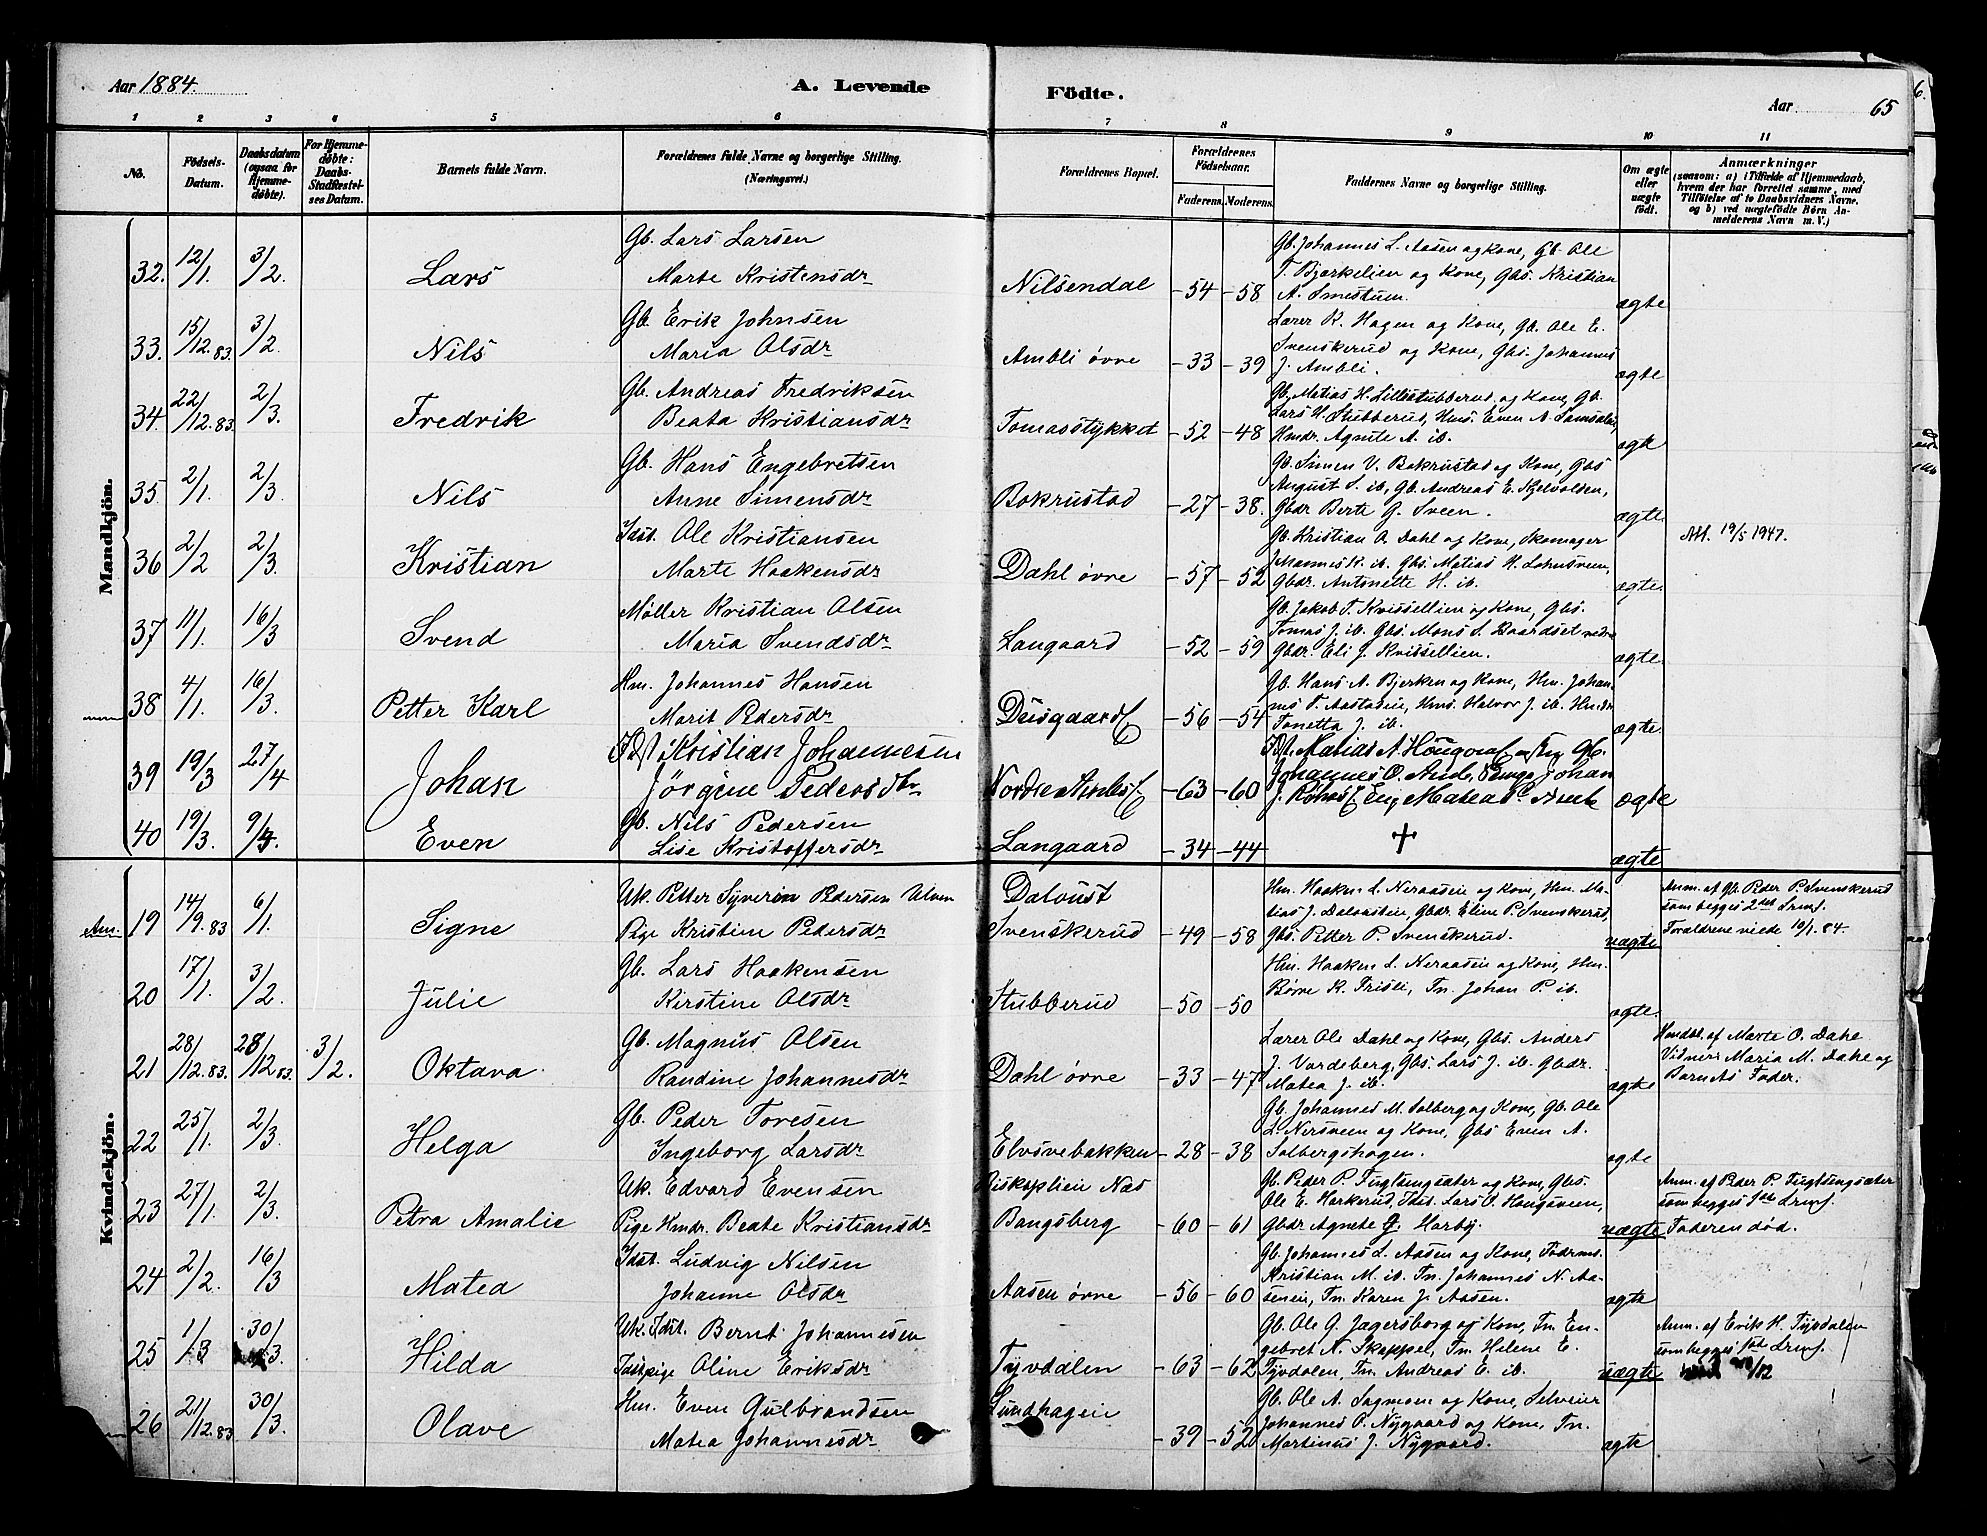 Aar 1884.
A. Levende
Födte.
Aar
65
1 2 3 4 5 6 7 8 9 10 11
No.
Födsels-Datum.
Daabsdatum (ogsaa for Hjemmedøbte).
For Hjemmedøbte: Daabs-Stadfæstelses Datum.
Barnets fulde Navn.
Forældrenes fulde Navne og borgerlige Stilling. (Næringsvei.)
Forældrenes Bopæl.
Forældrenes Födselsaar.
Faderens. Moderens.
Faddernes Navne og borgerlige Stilling.
Om ægte eller uægte födt.
Anmærkninger
(saasom: a) i Tilfælde af Hjemmedaab, hvem der har forrettet samme, med Tilføielse af to Daabsvidners Navne, og b) ved uægtefödte Börn Anmelderens Navn m. V.)
Mandkjön.
32. 12/1. 3/2. Lars Gb. Lars Larsen
Marte Kristensdr Nilsendal -54 -58 ægte
Gb. Johannes L. Aasen og Kone, Gb. Ole
T. Bjørkelien og Kone, Gbs. Kristian
A. Smestum.
33. 15/12.83. 3/2. Nils Gb. Erik Johnsen
Maria Olsdr Ambli øvre -33 -39 ægte
Lærer K. Hagen og Kone, Gb. Ole E.
Svenskerud og Kone, Gbs. Johannes
J. Ambli.
34. 22/12.83. 2/3. Fredrik Gb. Andreas Fredriksen
Beata Kristiansdr Tomasstykket -52 -48 ægte
Gb. Matias H. Lillestubberud og Kone, Gb.
Lars H. Stubberud, Hms. Even A.
Hmdr. Agnete A. ib.
35. 2/1. 2/3. Nils Gb. Hans Engebretsen
Anne Simensdr Bakrustad -27 -38. ægte
Gb. Simen V. Bakrustad og Kone, Gbs
August S. ib, Gb. Andreas E. Kjelvolden,
Gbdr Berte G. Sveen.
36 2/2 2/3. Kristian Idst. Ole Kristiansen
Marte Haakensdr Dahl øvre -57 -52 ægte
Gb. Kristian O. Dahl og Kone, Skomager
H. ib. Gbs. Matias
Gbdr. Antonette H. ib.
Att. 19/5 1947.
37 11/1. 16/3 Svend Møller Kristian Olsen
Maria Svendsdr Langaard -52 -59 ægte
Gb. Jakob T. Kvissellien og Kone, Gbs.
Tomas J. ib. Gbs. Mons S. Baardset nedre
Gbdr. Eli J. Kvissellien.
38 4/1. 16/3. Petter Karl Hm. Johannes Hansen
Marit Pedersdr -56 -54 ægte
Gb. Hans A. Bjerken og Kone, Hm. Johan-
nes T. Aastadeie, Hms. Halvor J. ib. Hmdr
Tonetta J. ib.
39 19/3 27/4 Johan Idst. Kristian Johannesen
Jörgine Pedersdtr -63 -60 ægte
40 19/3. Even Gb. Nils Pedersen
Lise Kristoffersdr Langaard -34 -44 † ægte
Kvindekjön.
Am. 19 14/9.83 6/1. Signe Uk. Petter Syverin Pedersen Ulven
Pige Kristine Pedersdr
Dalvust
Svenskerud -49 -58 uægte
Hm. Haaken L. Neraaseie og Kone, Hm. Ma-
tias J. Dalvasteie, Gbdr. Eline P. Svenskerud,
Gbs. Petter P. Svenskerud.
Anm. af Gb. Peder P. Svenskerud
som begges 2det Lrmf.
Forældrene viede 10/1. 84.
20 17/1. 3/2. Julie Gb. Lars Haakensen
Kirstine Olsdr Stubberud -50 -50 ægte.
Hm. Haaken L. Neraaseie og Kone, Hm.
Børre K. Frisli, Tn. Johan P. ib.
21 28/12.83. 28/12 83. 3/2. Oktava Gb. Magnus Olsen
Randine Johannesdr Dahl øvre -33 -47 ægte
Lærer Ole Dahl og Kone, Gbs. Anders
J. Vardeberg, Gbs. Lars J. ib. Gbdr.
Matea J. ib.
Hmdøbt. af Marte O. Dahl
Vidner: Maria M. Dahl og
Barnets Fader.
22 25/1. 2/3. Helga Gb. Peder Toresen
Ingeborg Larsdr Elvsvebakken -28 -38 ægte
Gb. Johannes M. Solberg og Kone, Gb. Ole
L. Nersveen og Kone, Gbs Even A.
Solbergshagen.
23 27/1. 2/3. Petra Amalie Uk. Edvard Evensen
Pige Hmdr. Beate Kristiansdr
Biskoplien Næs
Bangsberg -60 -61 uægte
Gb. Peder P. Fugtungsæter og Kone, Gbs.
Ole E. Harkerud, Idst. Lars O. Haugsveen,
Gbdr Agnete G. Harby.
Anm. af Peder P. Fugtungsæter
som begges 1ste Lrmf.
Faderen død.
24 2/2. 16/3 Matea Idst. Ludvig Nilsen
Johanne Olsdr Aasen øvre -56 -60 ægte
Gb. Johannes L. Aasen og Kone, Føderms.
Kristian M. ib. Tn. Johannes N. Aa-
seneie, Tn. Karen J. Aasen.
25 1/3 30/3. Hilda Uk. Idst. Bernt Johannesen
Idstpige Oline Eriksdr Tyvdalen -63 -62 uægte
Gb. Ole G. Jagersborg og Kone, Tn. En-
gebret N. Skappel, Tn. Helene E.
Tyvdalen, Tn. Andreas E. ib.
Anm. af Erik H. Tyvdalen
som begges 1ste Lrmf.
26 21/12.83 30/3. Olave Hm. Even Gulbrandsen
Matea Johannesdr Sundhageie -39 -52 ægte
Gb. Ole A. Sagmoen og Kone, Selveier
Johannes P. Nygaard og Kone, Tn.
Martinus J. Nygaard.